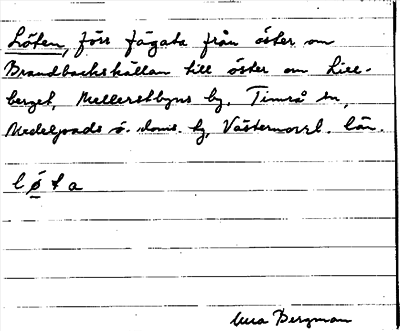 Löten, förr fägata från öster om
Brandbackskällan till öster om Lill-
berget, Mellerstbyns by, Timrå sn,
Medelpads ö. doms. hg, Västernorrl. län.
løta
Bergman